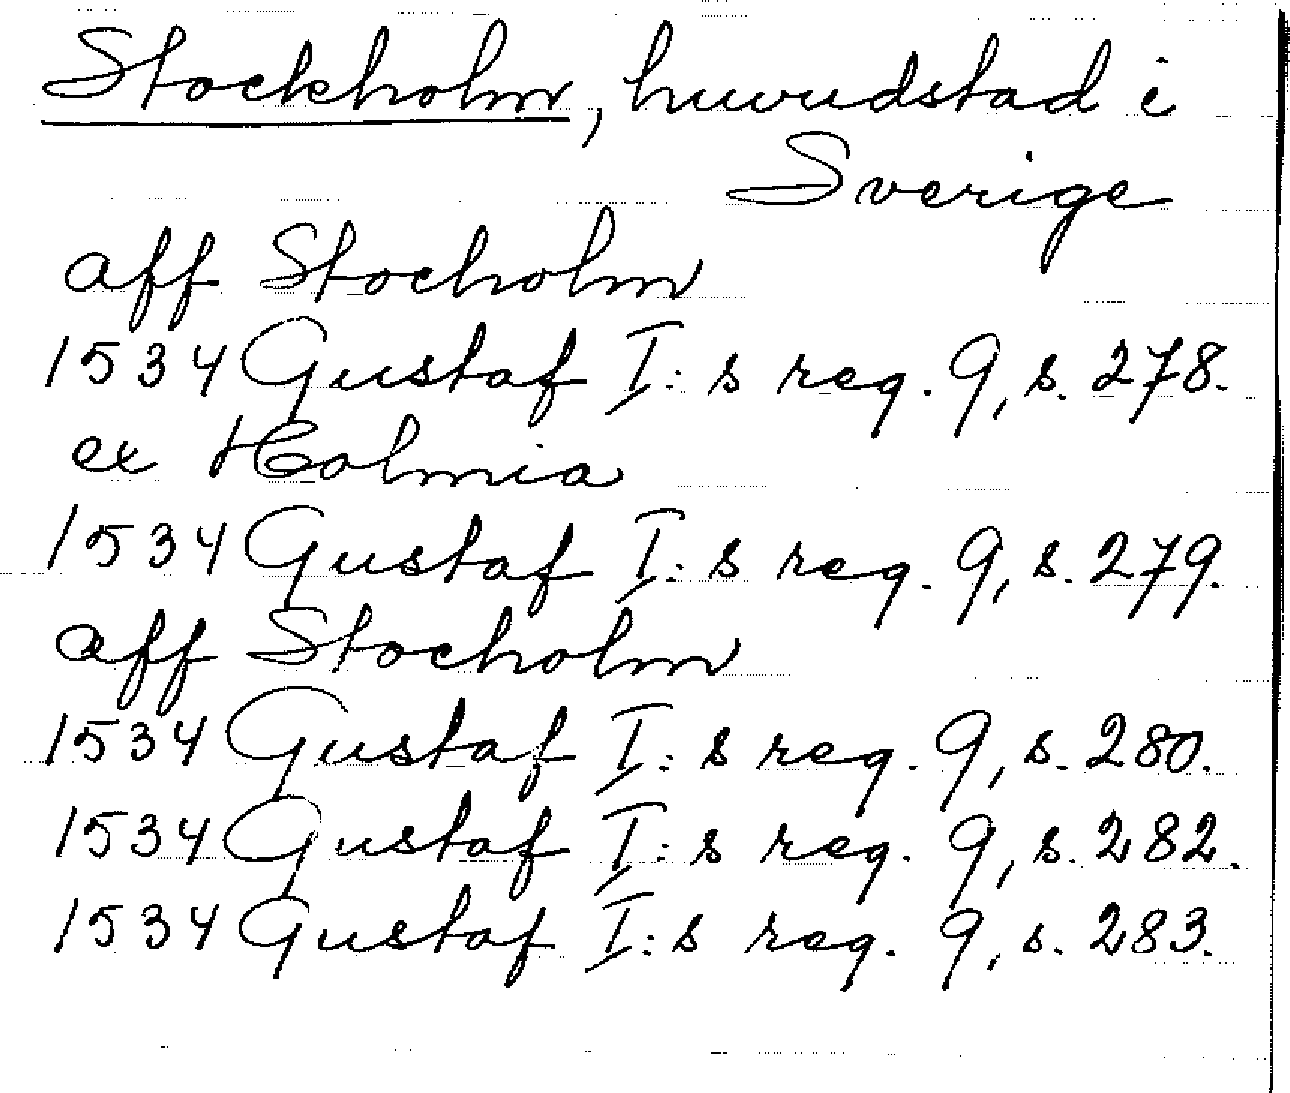 Stockholm, huvudstad i
Sverige
aff Stocholm
1534 Gustaf I:s reg. 9, s. 278.
ex Holmia
1534 Gustaf I:s reg. 9, s. 279.
aff Stocholm
1534 Gustaf I:s reg. 9, s. 280.
1534 Gustaf I:s reg. 9, s. 282.
1534 Gustaf I:s reg. 9, s. 283.